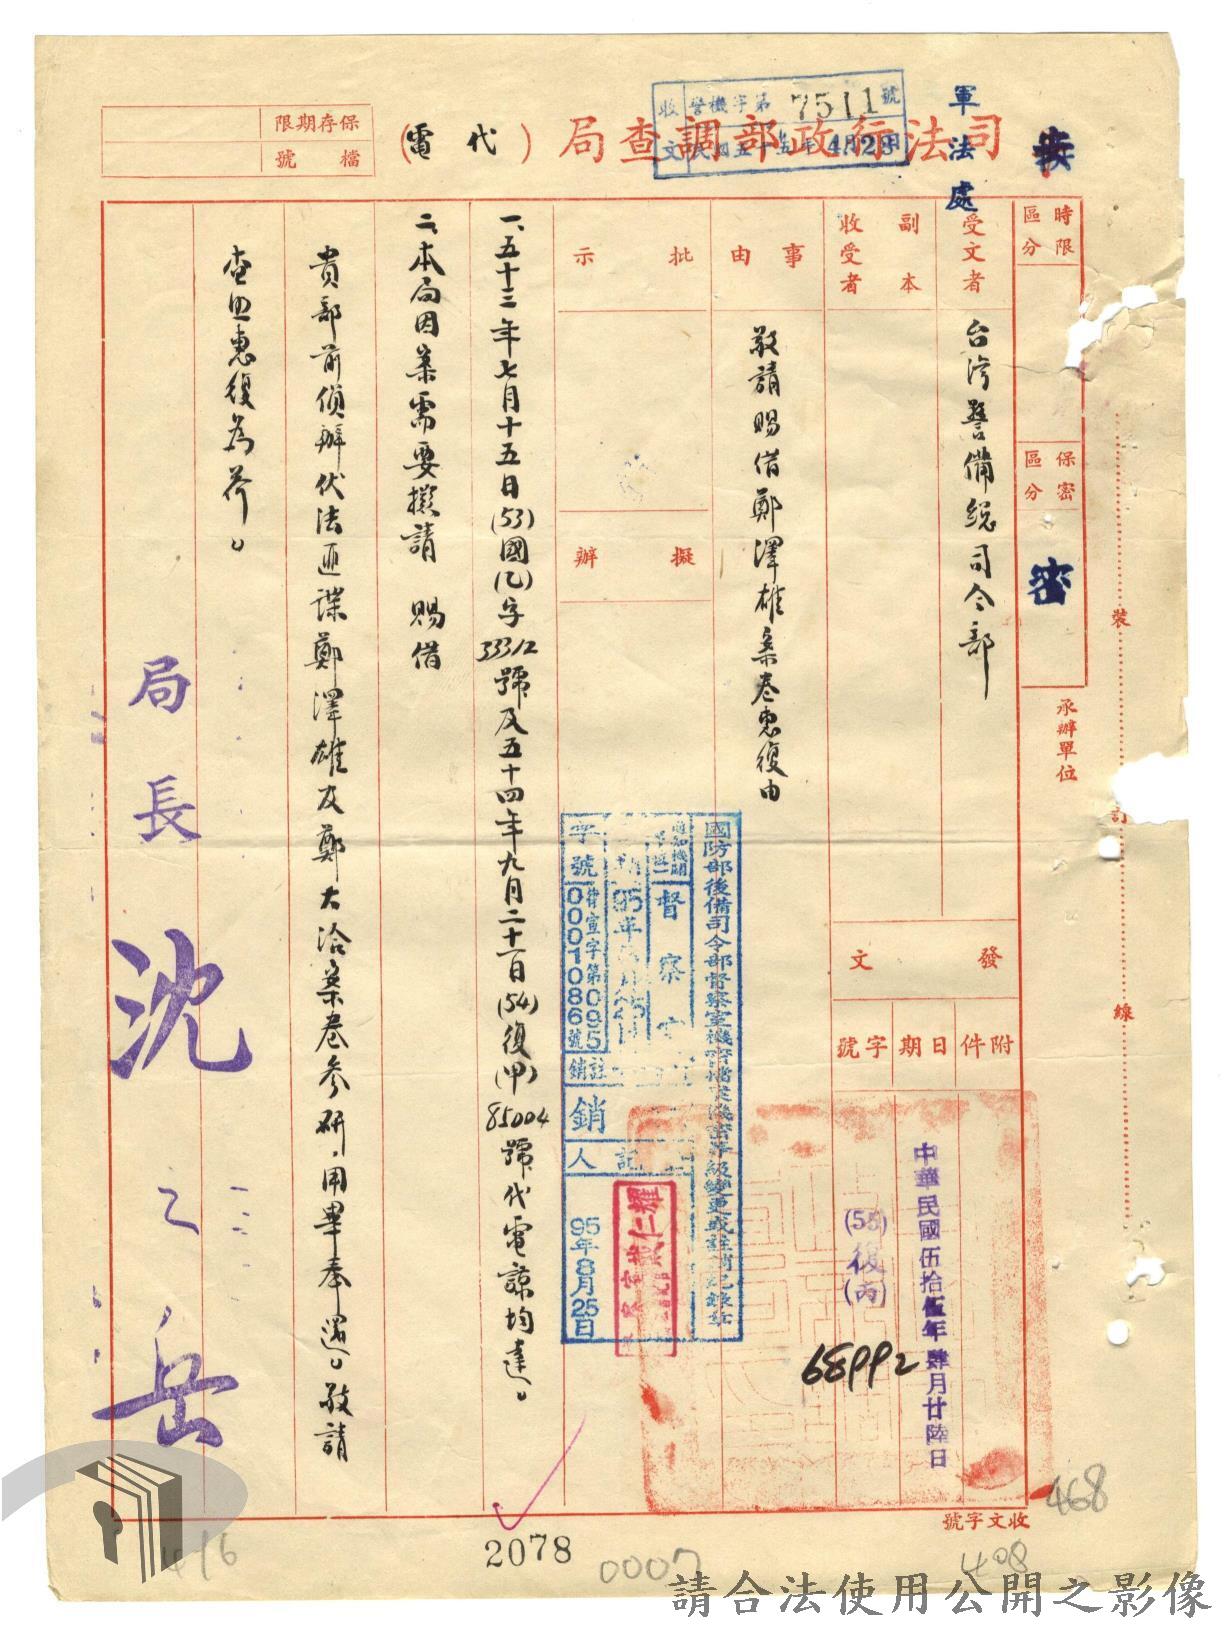 司法行政部調查局（代電）
保存期限
檔號
收文
警機字第7511號
民國五十五年4月28日
軍法處
時限區分
保密區分
密
承辦單位
受文者
台湾警備総司令部
副本收受者
事由
敬請賜借鄭澤雄案卷惠復由
批示
擬辦
發文
附件
日期
中華民國伍拾伍年肆月廿陸日
字號
(55)復(丙)
68992
一、五十三年七月十五日(53)國(乙)字33312號及五十四年九月二十一日(54)復(甲)85004號代電諒均達。
二、本局因案需要擬請　賜借
貴部前偵辦伏法匪諜鄭澤雄及鄭大洽案卷參研，用畢奉還。敬請
查照惠復為荷。
局長沈之岳
國防部後備司令部督察室機密檔案機密等級變更或註銷紀錄章
督察室
字號
律宣字第0950001086號
註銷
95年8月25日
裝
訂
線
收文字號
2078
0007
468
408
416
請合法使用公開之影像